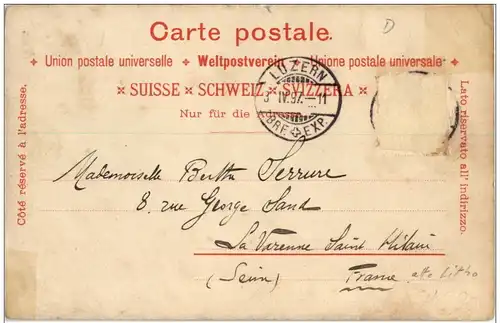 D
Carte postale.
+ Union postale universelle + Weltpostverein + Unione postale universale +
× SUISSE × SCHWEIZ × SVIZZERA ×
Nur für die Adresse.
LUZERN
3 IV.97.–11
BRF. EXP.
Côté réservé à l'adresse.
Lato riservato all' indirizzo.
Mademoiselle Berthe Serrure
8, rue George Sand
La Varenne Saint Hilaire
(Seine) France
alte Litho